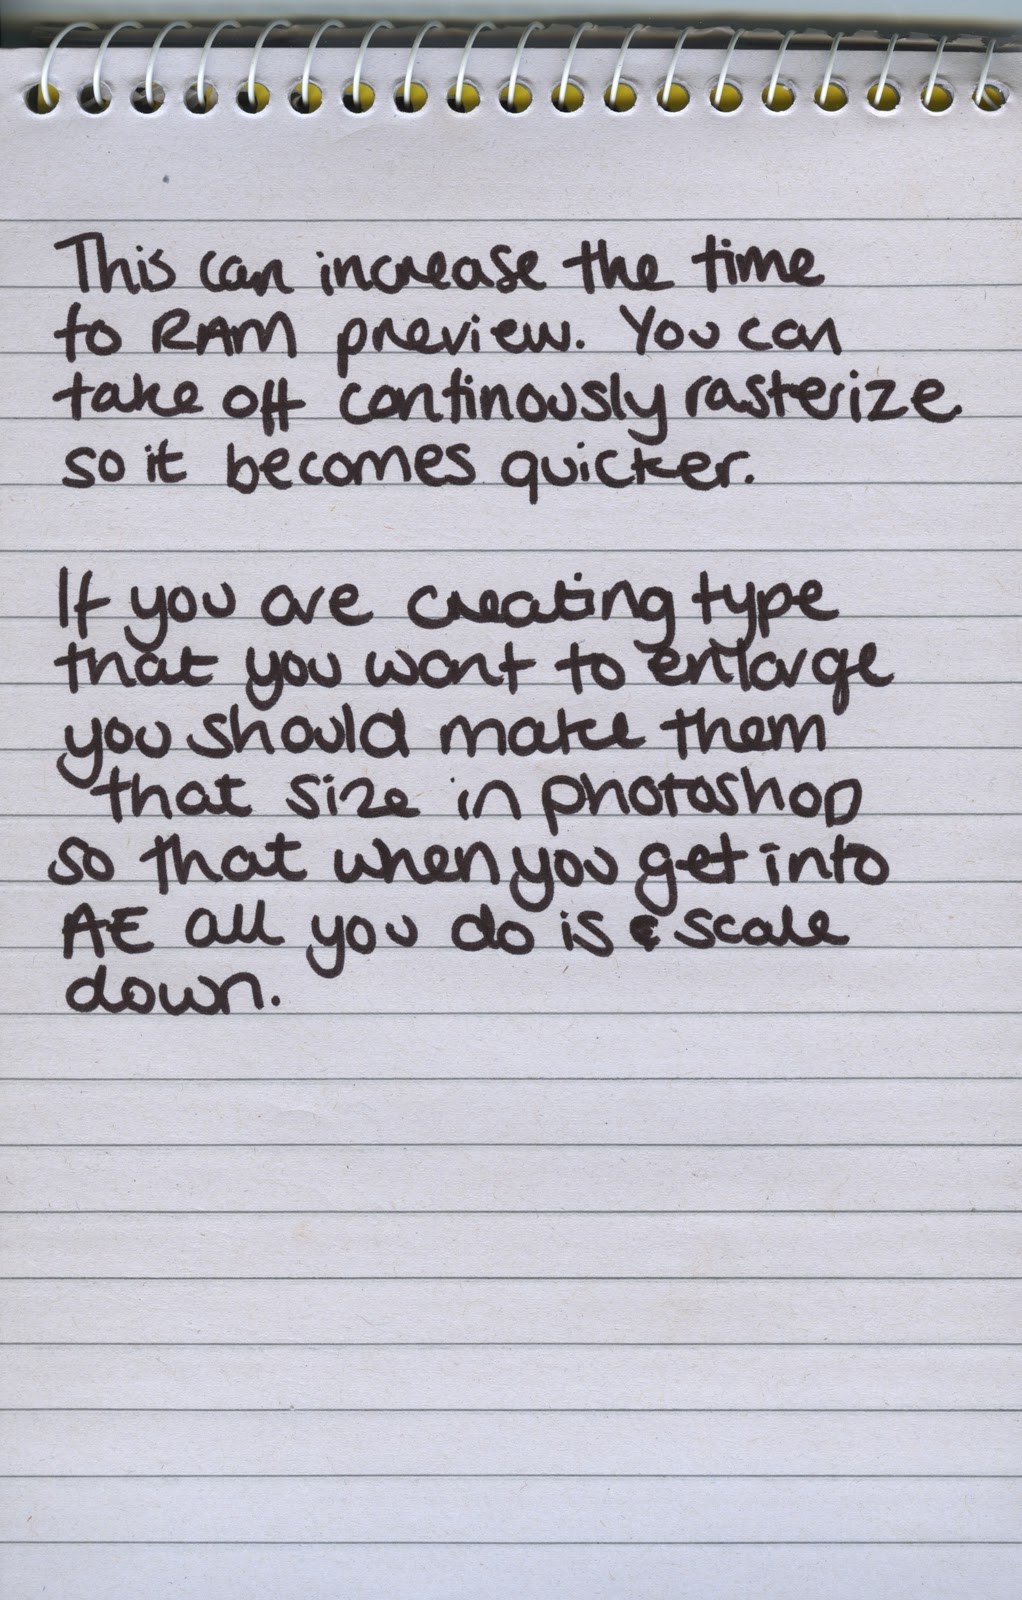 This can increase the time
to RAM preview. You can
take off continously rasterize
so it becomes quicker.
If you are creating type
that you want to enlarge
you should make them
that size in photoshop
so that when you get into
AE all you do is scale
down.